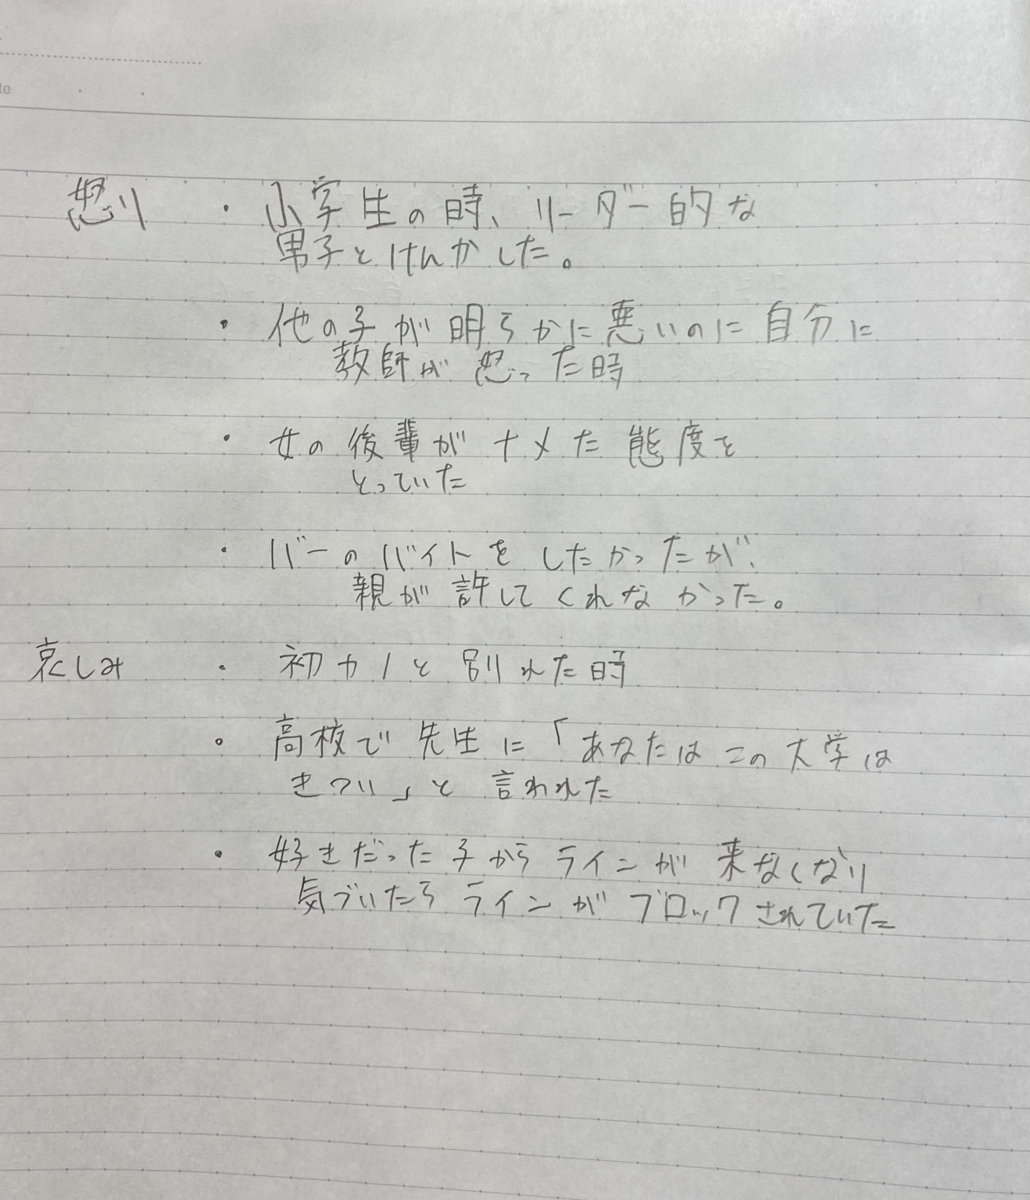 te
怒り ・小学生の時、リーダー的な
男子とけんかした。
・他の子が明らかに悪いのに自分に
教師が怒った時
・女の後輩がナメた態度を
とっていた
・バーのバイトをしたかったが、
親が許してくれなかった。
哀しみ ・初カノと別れた時
・高校で先生に「あなたはこの大学は
きつい」と言われた
・好きだった子からラインが来なくなり
気づいたらラインがブロックされていた